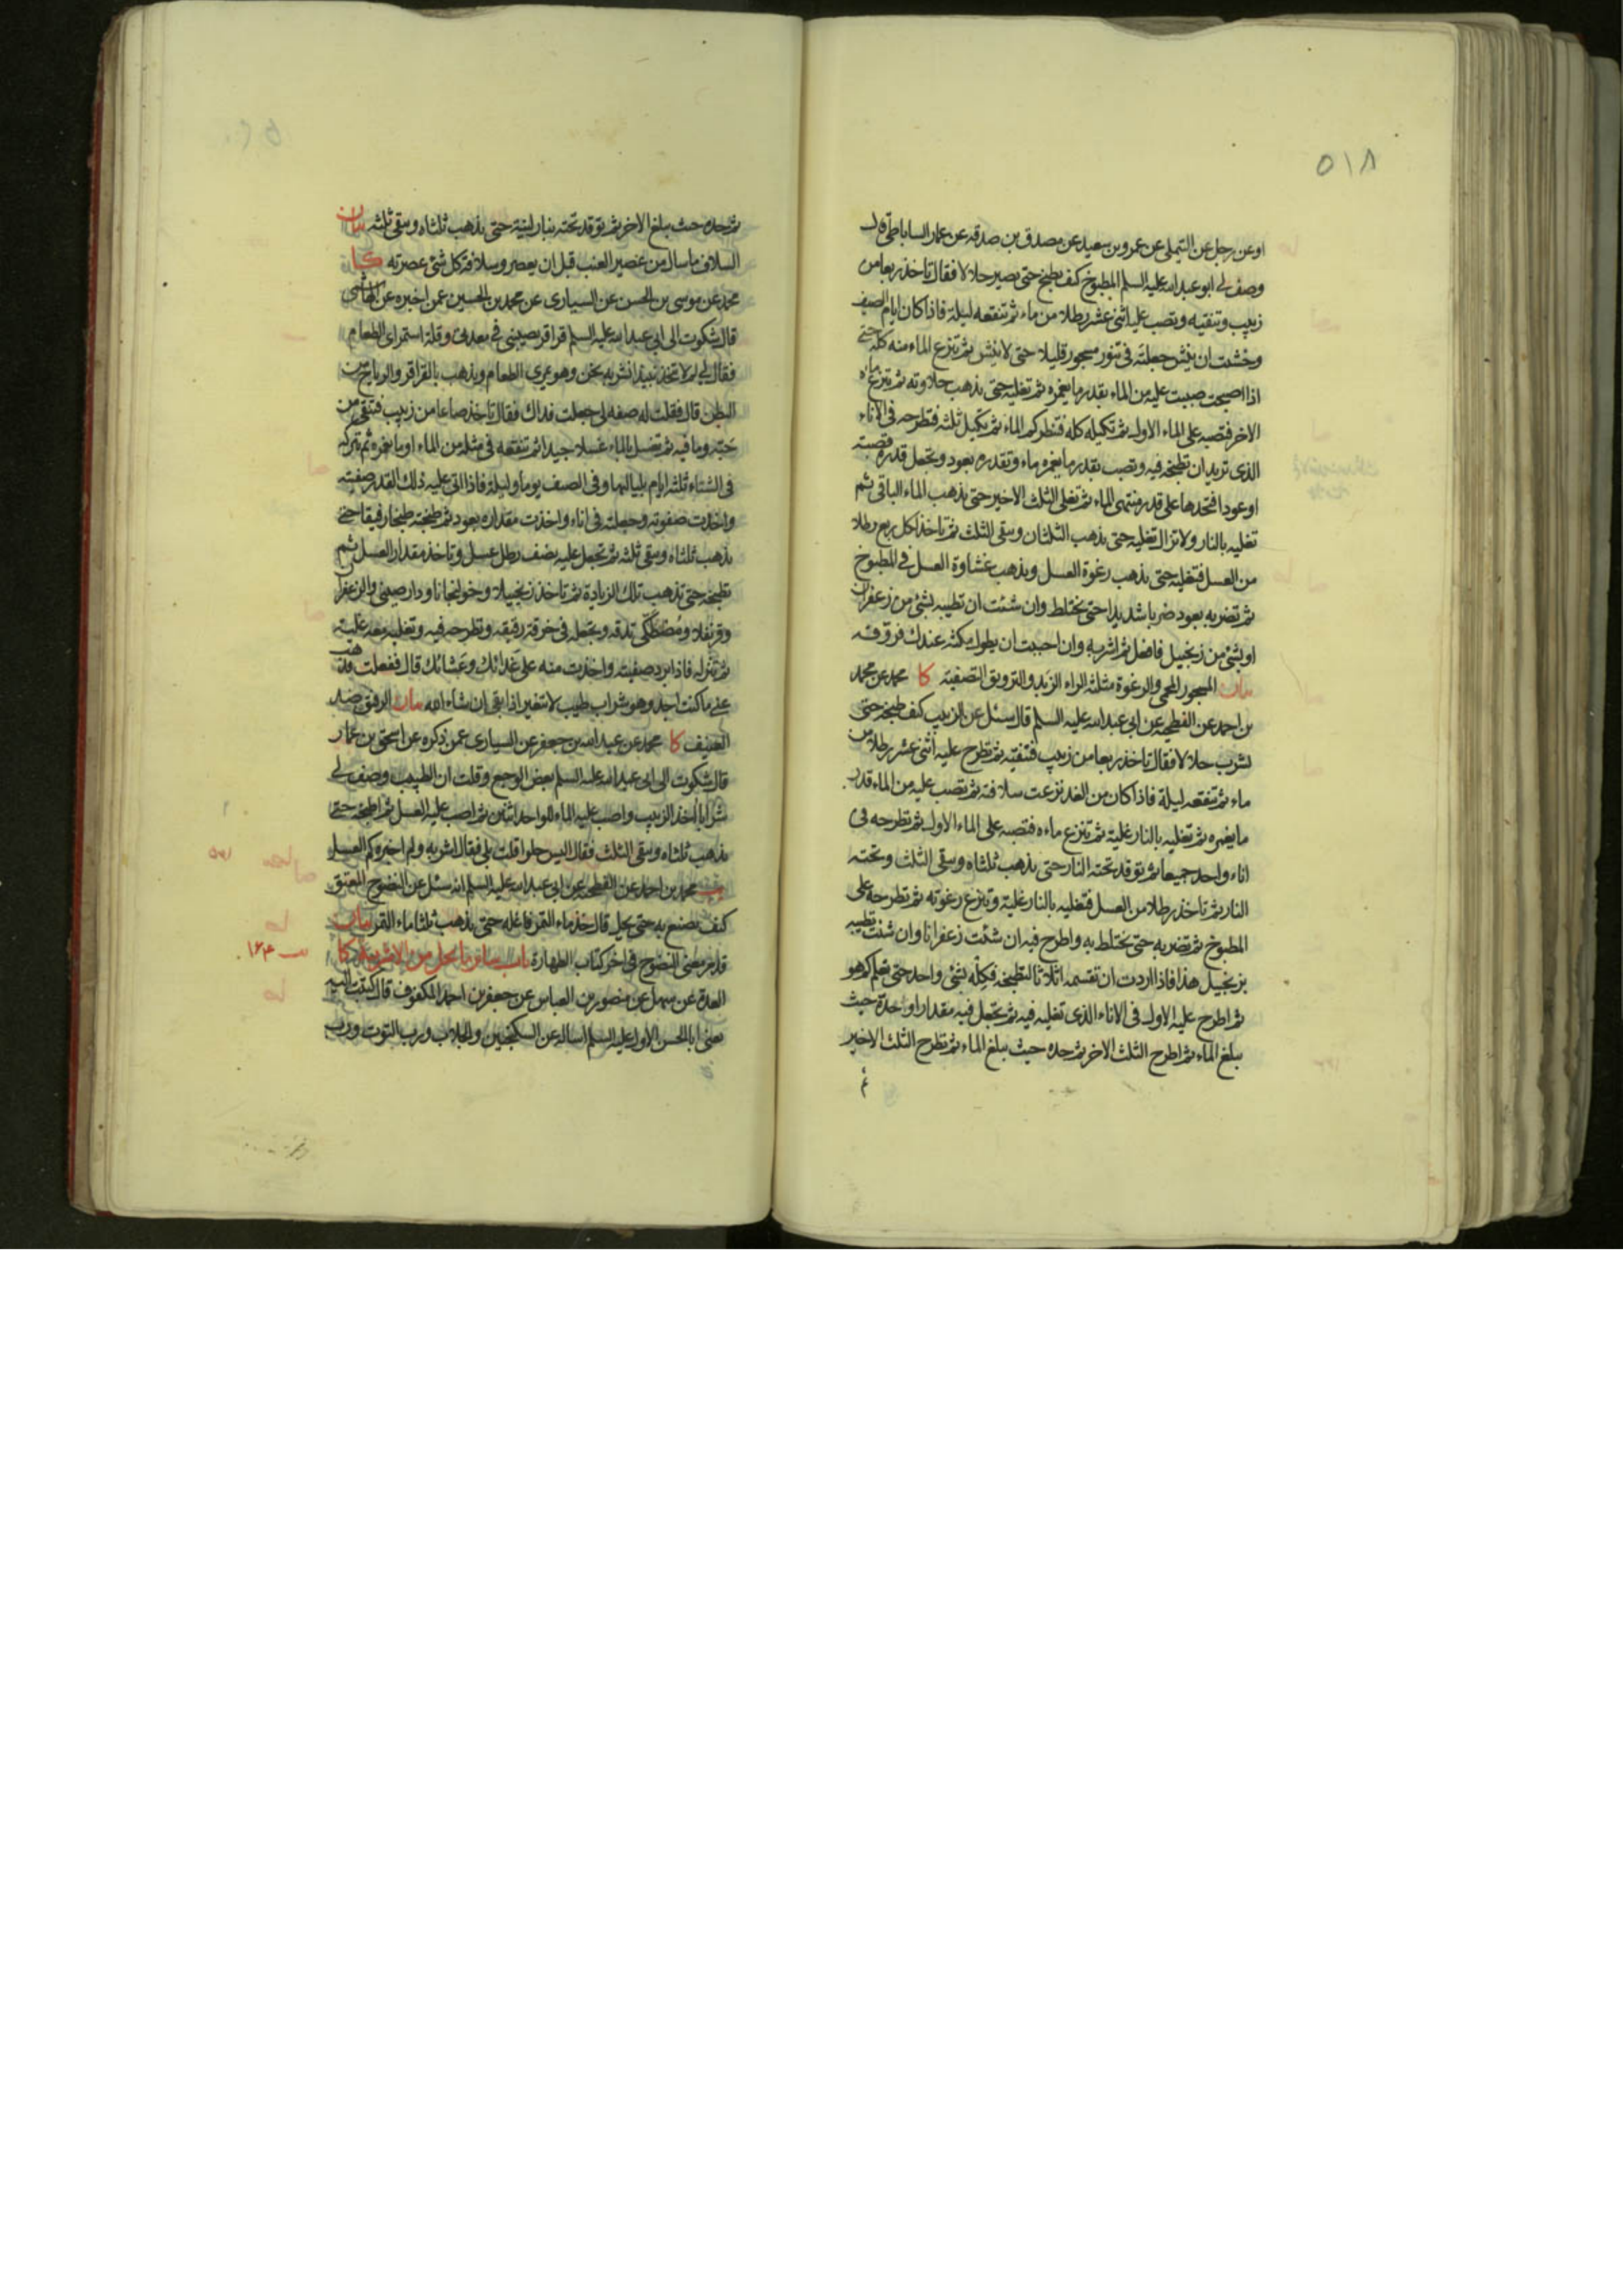 ٥١٨
او عن رجل عن التيملى عن عمرو بن سعيد عن مصدق بن صدقه عن عمار الساباطى قال
وصف لى ابو عبد الله عليه السلم المطبوخ كيف يطبخ حتى يصير حلالا فقال تاخذ ربعا من
زبيب وتنقيه وتصب عليه اثنى عشر رطلا من ماء ثم تنقعه ليلة فاذا كان ايام الصيف
وخشيت ان ينش جعلته فى تنور مسجور قليلا حتى لا ينش ثم تنزع الماء منه كله حتى
اذا اصبحت صببت عليه من الماء بقدر ما يغمره ثم تغليه حتى يذهب حلاوته ثم تنزع ماءه
الاخر فتصبه على الماء الاول ثم تكيله كله فتنظر كم الماء ثم يكيل ثلثه فتطرحه فى الاناء
الذى تريد ان تطبخه فيه وتصب بقدر ما يغمره ماء وتقدره بعود وتجعل قدره قصبة
او عودا فتحدها على قدر منتهى الماء ثم تغلى الثلث الاخير حتى يذهب الماء الباقى ثم
تغليه بالنار ولا تزال تغليه حتى يذهب الثلثان ويبقى الثلث ثم تاخذ لكل ربع رطلا
من العسل فتغليه حتى يذهب رغوة العسل ويذهب غشاوة العسل فى المطبوخ
ثم تضربه بعود ضربا شديدا حتى يختلط وان شئت ان تطيبه بشئ من زعفران
او بشئ من زنجبيل فافعل ثم اشربه وان احببت ان يطول مكثه عندك فروقه
بيان المسجور المحمى والرغوة مثلثة الراء الزبد والترويق التصفية كا محمد عن محمد
بن احمد عن الفطحية عن ابى عبد الله عليه السلم قال سئل عن الزبيب كيف طبخه حتى
يشرب حلالا فقال تاخذ ربعا من زبيب فتنقيه ثم تطرح عليه اثنى عشر رطلا من
ماء ثم تنقعه ليلة فاذا كان من الغد نزعت سلافته ثم تصب عليه من الماء قدر
ما يغمره ثم تغليه بالنار غلية ثم تنزع ماءه فتصبه على الماء الاول ثم تطرحه فى
اناء واحد جميعا ثم توقد تحته النار حتى يذهب ثلثاه ويبقى الثلث وتحته
النار ثم تاخذ رطلا من العسل فتغليه بالنار غلية وتنزع رغوته ثم تطرحه على
المطبوخ ثم تضربه حتى يختلط به واطرح فيه ان شئت زعفرانا وان شئت تطيبه
بزنجبيل هذا فاذا اردت ان تقسمه اثلاثا لتطبخه فكله بشئ واحد حتى تعلم كم هو
ثم اطرح عليه الاول فى الاناء الذى تغليه فيه ثم تجعل فيه مقدارا وحده حيث
يبلغ الماء ثم اطرح الثلث الاخر ثم حده حيث يبلغ الماء ثم تطرح الثلث الاخير
ثم
ثم حده حيث يبلغ الاخر ثم توقد تحته بنار لينة حتى يذهب ثلثاه ويبقى ثلثه بيان
السلاف ما سال من عصير العنب قبل ان يعصر وسلافة كل شئ عصرته كا
محمد عن موسى بن الحسن عن السيارى عن محمد بن الحسين عمن اخبره عن الهاشمى
قال شكوت الى ابى عبد الله عليه السلم قراقر تصيبنى فى معدتى وقلة استمراى الطعام
فقال لى لم لا تتخذ نبيذا نشربه نحن وهو يمرى الطعام ويذهب بالقراقر والرياح من
البطن قال فقلت له صفه لى جعلت فداك فقال تاخذ صاعا من زبيب فتنقى من
حبه وما فيه ثم تغسل بالماء غسلا جيدا ثم تنقعه فى مثله من الماء او ما يغمره ثم تتركه
فى الشتاء ثلثة ايام بلياليها وفى الصيف يوما وليلة فاذا اتى عليه ذلك القدر صفيته
واخذت صفوته وجعلته فى اناء واخذت مقداره بعود ثم طبخته طبخا رفيقا حتى
يذهب ثلثاه ويبقى ثلثه ثم تجعل عليه نصف رطل عسل وتاخذ مقدار العسل ثم
تطبخه حتى تذهب تلك الزيادة ثم تاخذ زنجبيلا وخولنجانا ودارصينى والزعفران
وقرنفلا ومصطكى تدقه وتجعله فى خرقة رقيقة وتطرحه فيه وتغليه معه غلية
ثم تنزله فاذا برد صفيته واخذت منه على غدائك وعشائك قال ففعلت فذهب
عنى ما كنت اجد وهو شراب طيب لا تتغير اذا بقى ان شاء الله بيان الرفق ضد
العنيف كا محمد عن عبد الله بن جعفر عن السيارى عمن ذكره عن اسحق بن عمار
قال شكوت الى ابى عبد الله عليه السلم بعض الوجع وقلت ان الطبيب وصف لى
شرابا اخذ الزبيب واصب عليه الماء للواحد اثنين ثم اصب عليه العسل ثم اطبخه حتى
يذهب ثلثاه ويبقى الثلث فقال اليس حلوا قلت بلى فقال اشربه ولم اخبره كم العسل
يب محمد بن احمد عن الفطحية عن ابى عبد الله عليه السلم انه سئل عن النضوح المعتق
كيف يصنع به حتى يحل قال خذ ماء التمر فاغله حتى يذهب ثلثا ماء التمر بيان
قد مر معنى النضوح فى اخر كتاب الطهارة باب سائر ما يحل من الاشربة كا
العدة عن سهل عن منصور بن العباس عن جعفر بن احمد المكفوف قال كتبت اليه
يعنى ابا الحسن الاول عليه السلم اساله عن السكنجبين والجلاب ورب التوت ورب